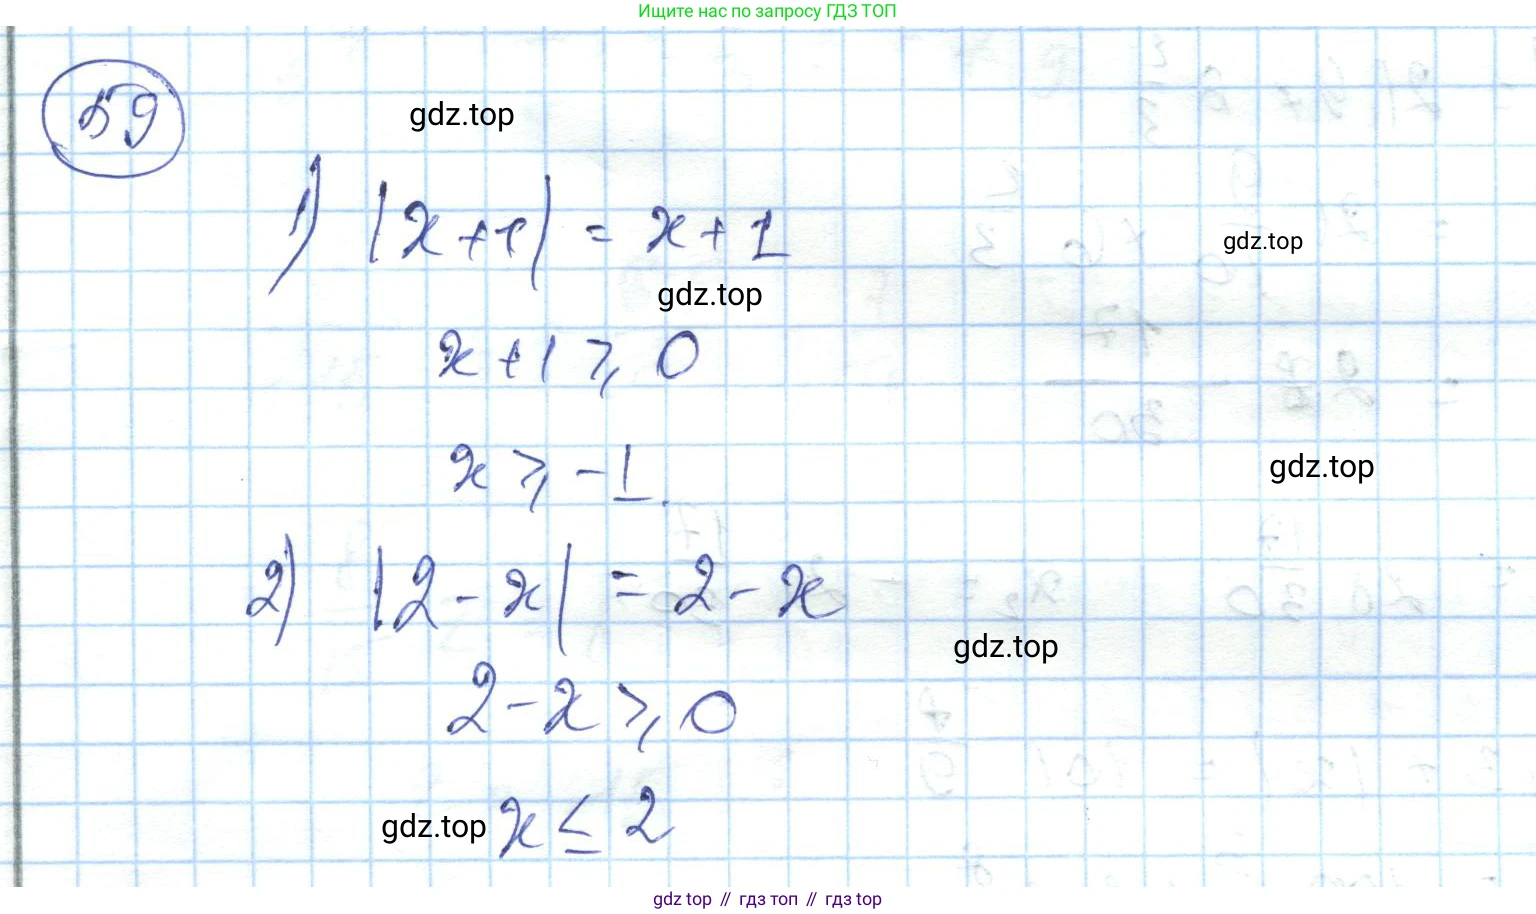 Ищите нас по запросу ГДЗ ТОП
59
gdz.top
1) |x+1| = x+1
gdz.top
gdz.top
x+1 ⩾ 0
x ⩾ -1.
gdz.top
2) |2-x| = 2-x
gdz.top
2-x ⩾ 0
gdz.top
x ≤ 2
gdz top // гдз топ // гдз top